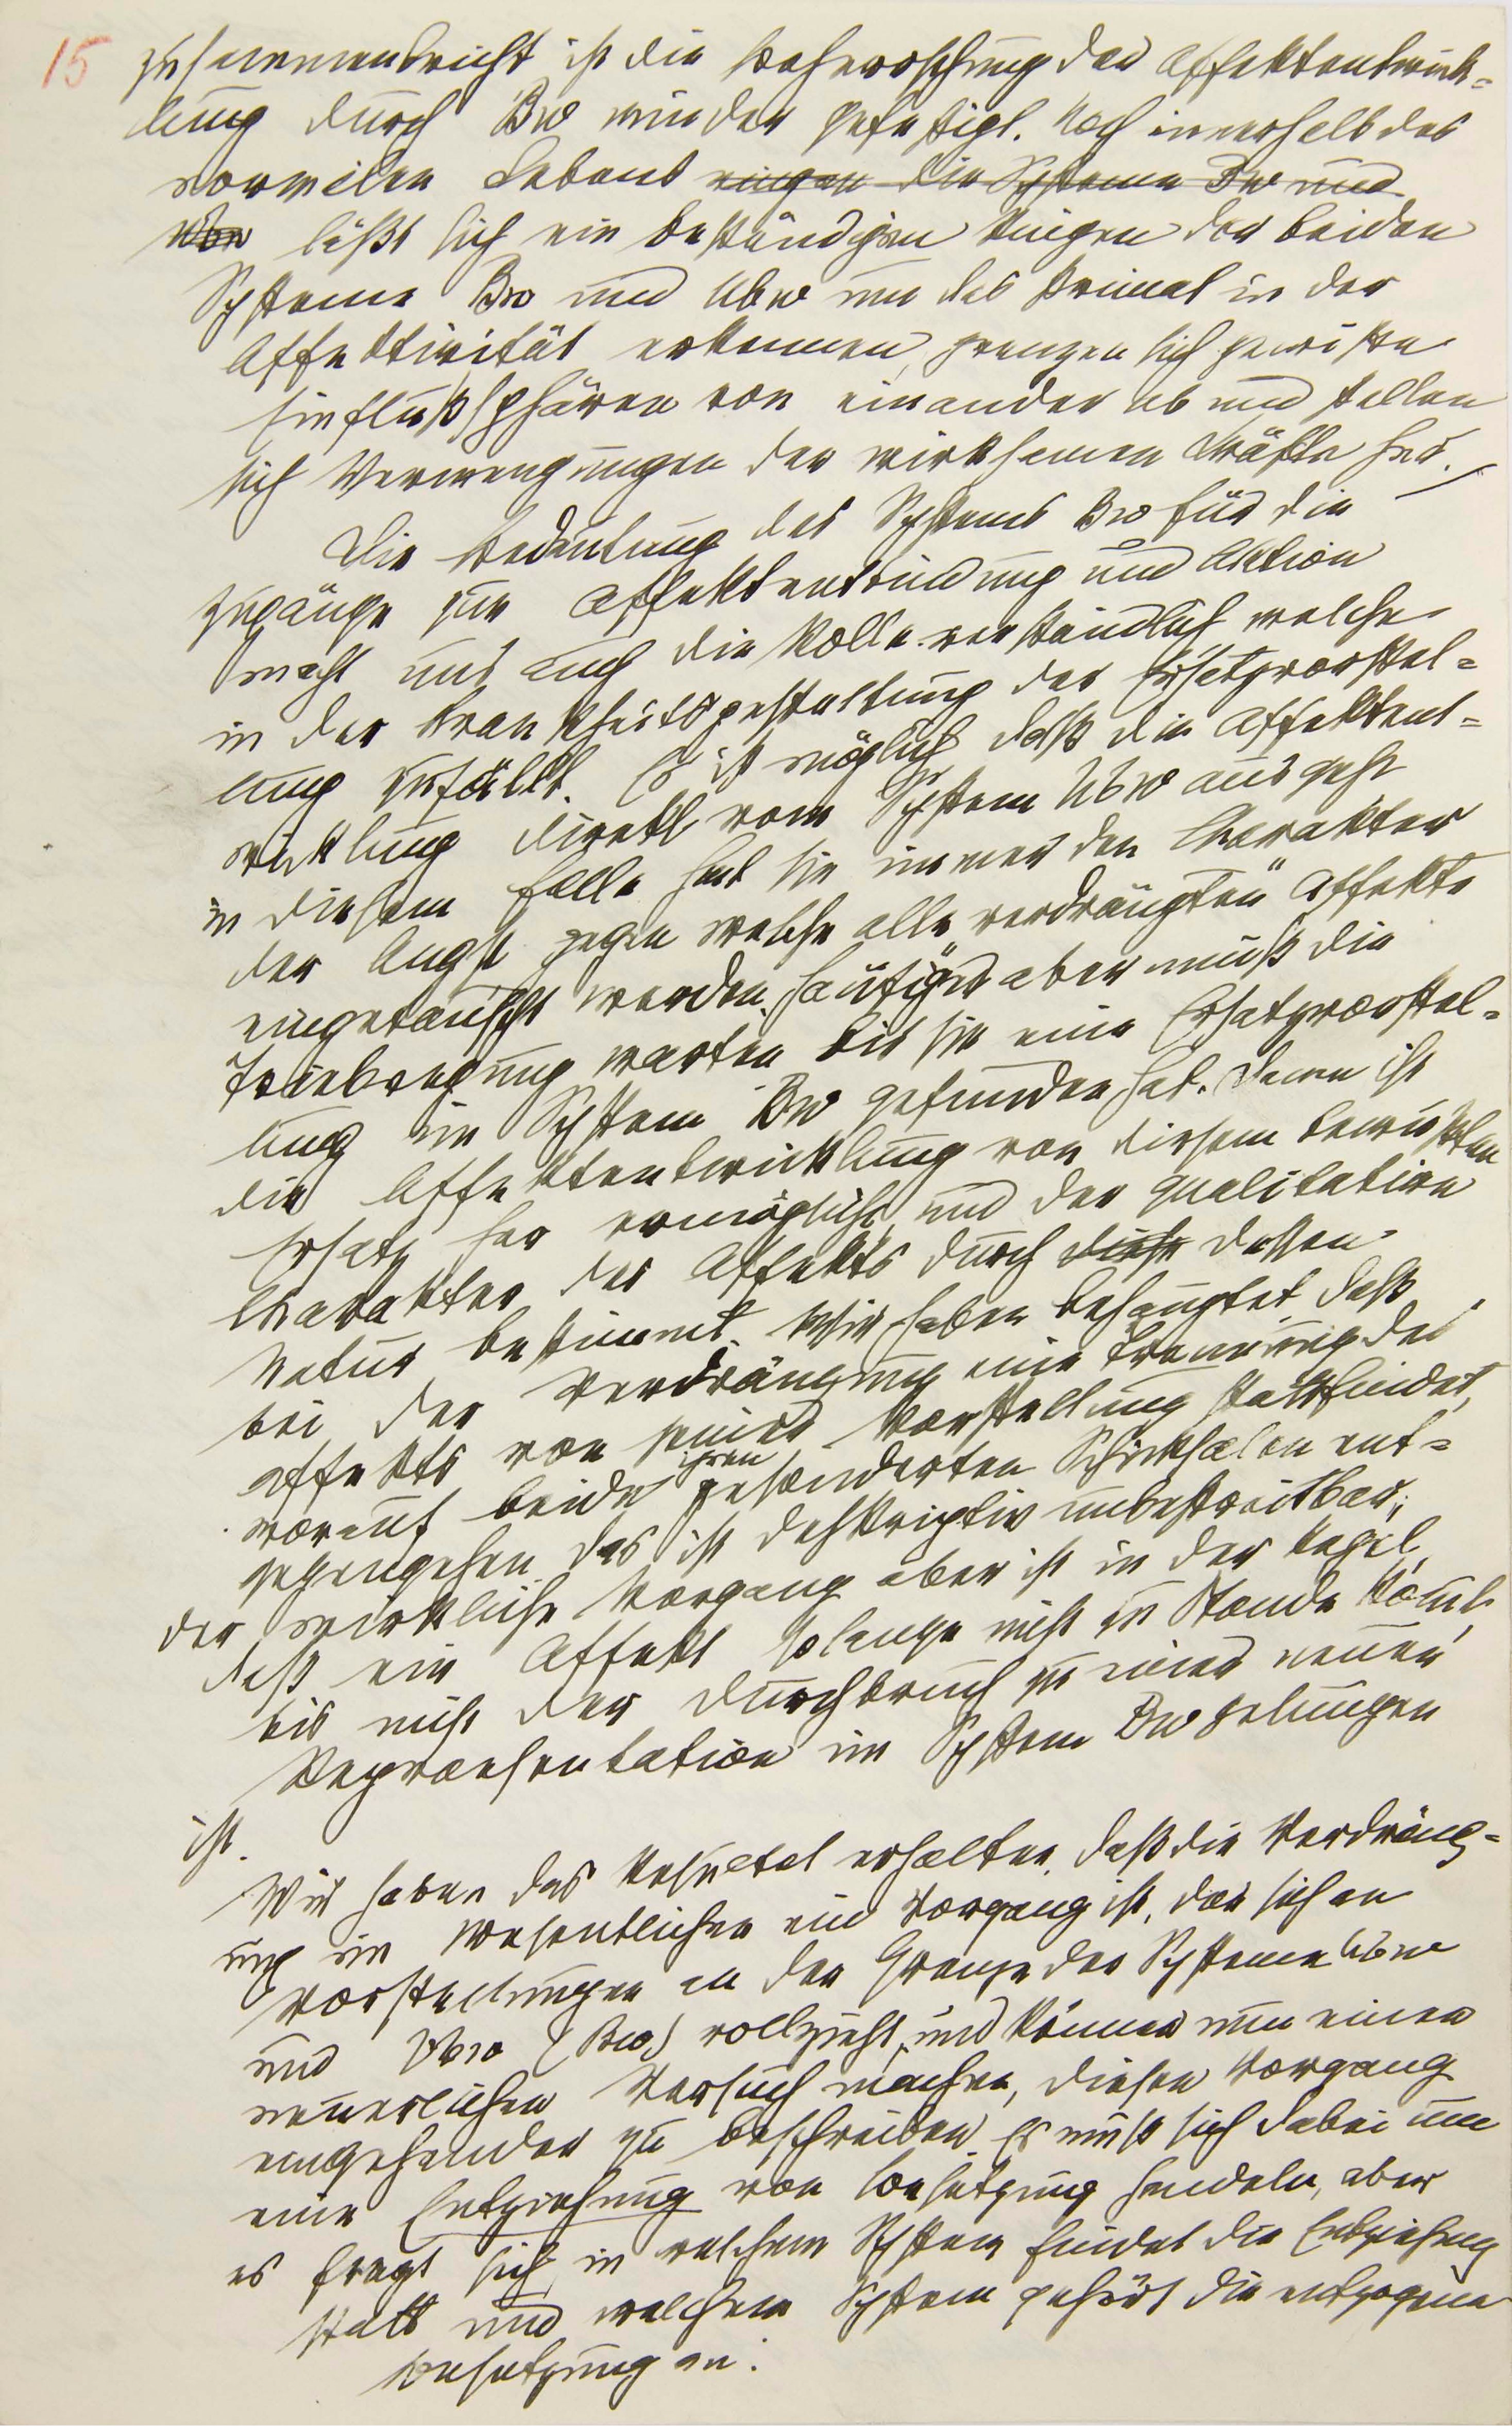 15
zusammenbricht ist die Beherrschung der Affektentwick=
lung durch Bw minder gefestigt. Noch innerhalb des
normalen Lebens ringen die Systeme Bw und
Ubw läßt sich ein beständiges Ringen der beiden
Systeme Bw und Ubw um das Primat in der
Affektivität erkennen, grenzen sich gewisse
Einflußsphären von einander ab und stellen
sich Vermengungen der wirksamen Kräfte her.
Die Bedeutung des Systems Bw für die
Zugänge zur Affektentbindung und Aktion
macht uns auch die Rolle verständlich welche
in der Krankheitsgestaltung der Ersatzvorstel=
lung zufällt. Es ist möglich daß die Affektent=
wicklung direkt vom System Ubw ausgeht
in diesem Falle hat sie immer den Charakter
der Angst gegen welche alle verdrängten Affekte
eingetauscht werden. Häufig aber muß die
Triebregung warten bis sie eine Ersatzvorstel=
lung im System Bw gefunden hat. Dann ist
die Affektentwicklung von diesem bewußten
Ersatz her ermöglicht und der qualitative
Charakter des Affekts durch diese dessen
Natur bestimmt. Wir haben behauptet daß
bei der Verdrängung eine Trennung des
Affekts von seiner Vorstellung stattfindet,
worauf beide ihren gesonderten Schicksalen ent=
gegengehen. Das ist deskriptiv unbestreitbar;
der wirkliche Vorgang aber ist in der Regel,
daß ein Affekt solange nicht zu Stande kömt,
bis nicht der Durchbruch zu einer neuen
Repraesentation im System Bw gelungen
ist.
Wir haben das Resultat erhalten, daß die Verdräng=
ung im wesentlichen ein Vorgang ist, der sich an
Vorstellungen an der Grenze der Systeme Ubw
und Vbw (Bw) vollzieht, und können nun einen
neuerlichen Versuch machen, diesen Vorgang
eingehender zu beschreiben. Es muß sich dabei um
eine Entziehung von Besetzung handeln, aber
es fragt sich, in welchem System findet die Entziehung
statt und welchem System gehört die entzogene
Besetzung an.